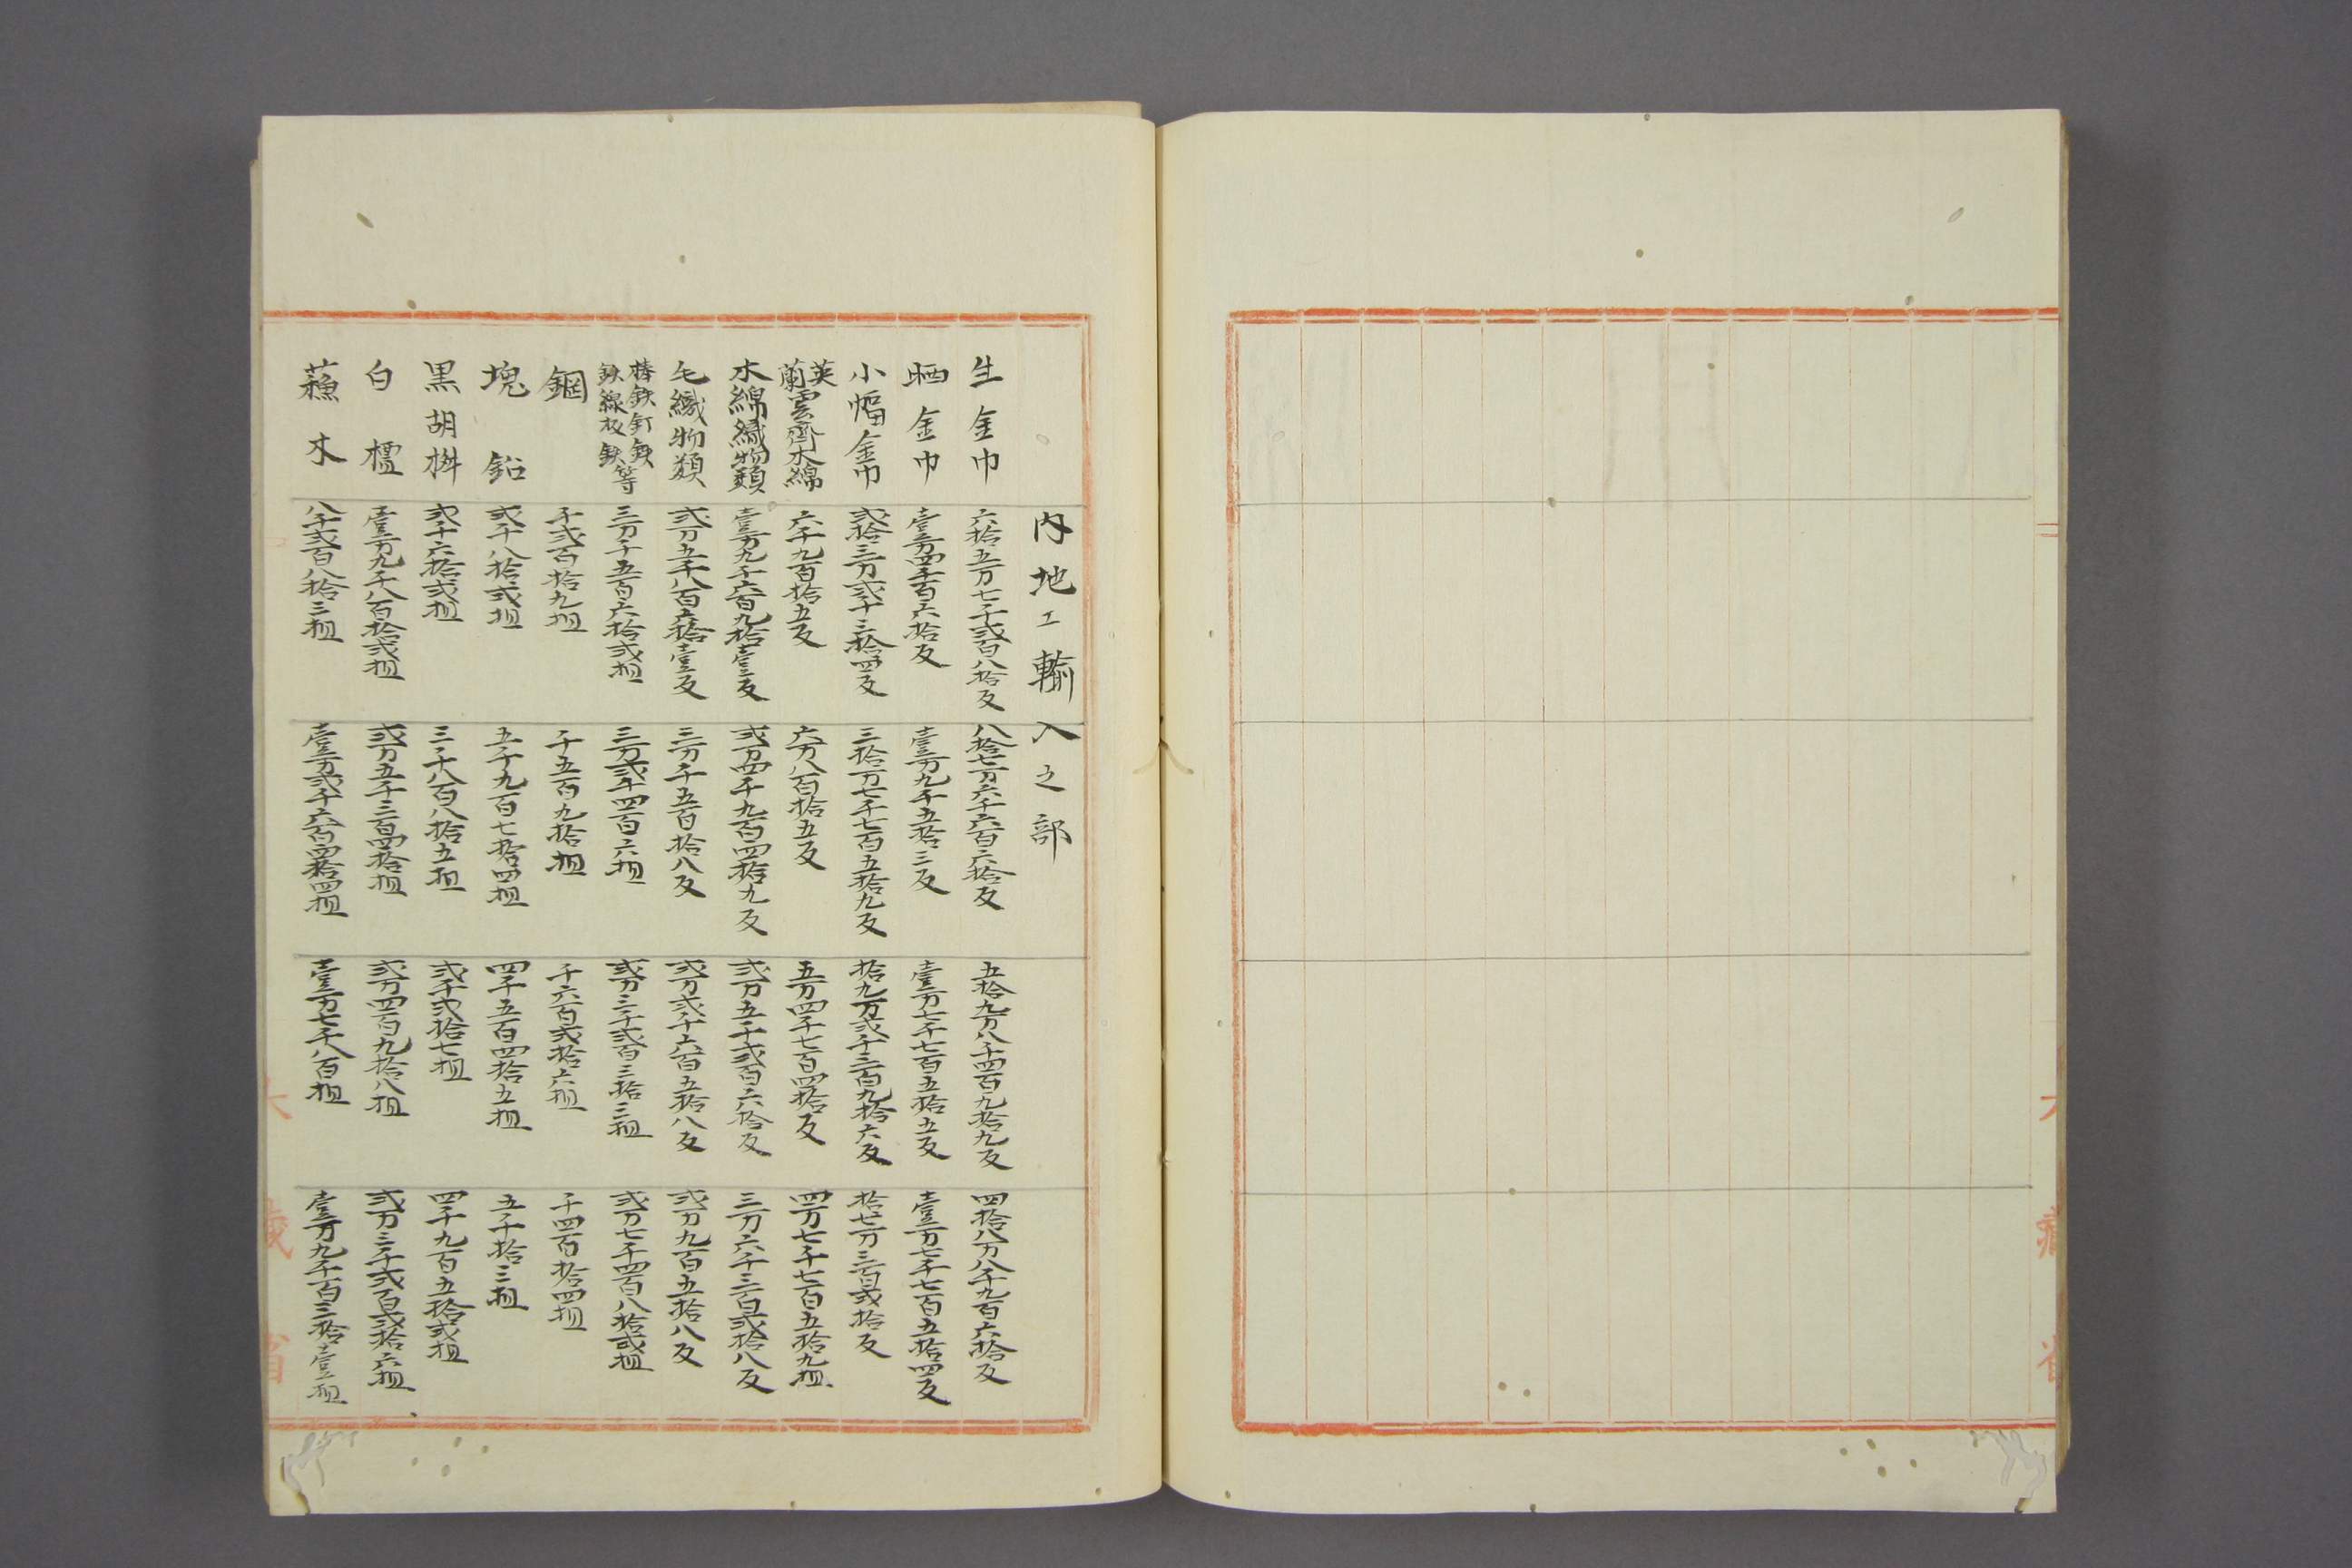 内地エ輸入之部
生金巾 六拾五万七千弐百八拾反 八拾七万六千六百六拾反 五拾九万八千四百九拾九反 四拾八万八千九百六拾反
晒金巾 壹万四千百六拾反 壹万九千五拾三反 壹万七千七百五拾五反 壹万七千七百五拾四反
小幅金巾 弐拾三万弐千三拾四反 三拾万七千七百五拾九反 拾九万弐千三百九拾六反 拾七万三百弐拾反
英蘭雲齊木綿 六千九百拾五反 六万八百拾五反 五万四千七百四拾反 四万七千七百五拾九担
木綿織物類 壹万九千六百九拾壹反 弐万四千九百四拾九反 弐万五千弐百六拾反 三万六千三百弐拾八反
毛織物類 弐万五千八百五拾壹反 三万千五百拾八反 弐万弐千六百五拾八反 弐万九百五拾八反
棒鉄釘鉄鉄線板鉄等 三万千五百六拾弐担 三万弐千四百六担 弐万三千弐百三拾三担 弐万七千四百八拾弐担
鋼 千弐百拾九担 千五百九拾担 千六百弐拾六担 千四百拾四担
塊鉛 弐千八拾弐担 五千九百七拾四担 四千五百四拾五担 五千拾三担
黒胡椒 弐千六拾弐担 三千八百八拾五担 弐千弐拾七担 四千九百五拾弐担
白檀 壹万九千八百拾弐担 弐万五千三百四拾担 弐万四百九拾八担 弐万三千弐百弐拾六担
蘓木 八千弐百八拾三担 壹万弐千六百四拾四担 壹万七千八百担 壹万九千百三拾壹担
大藏省